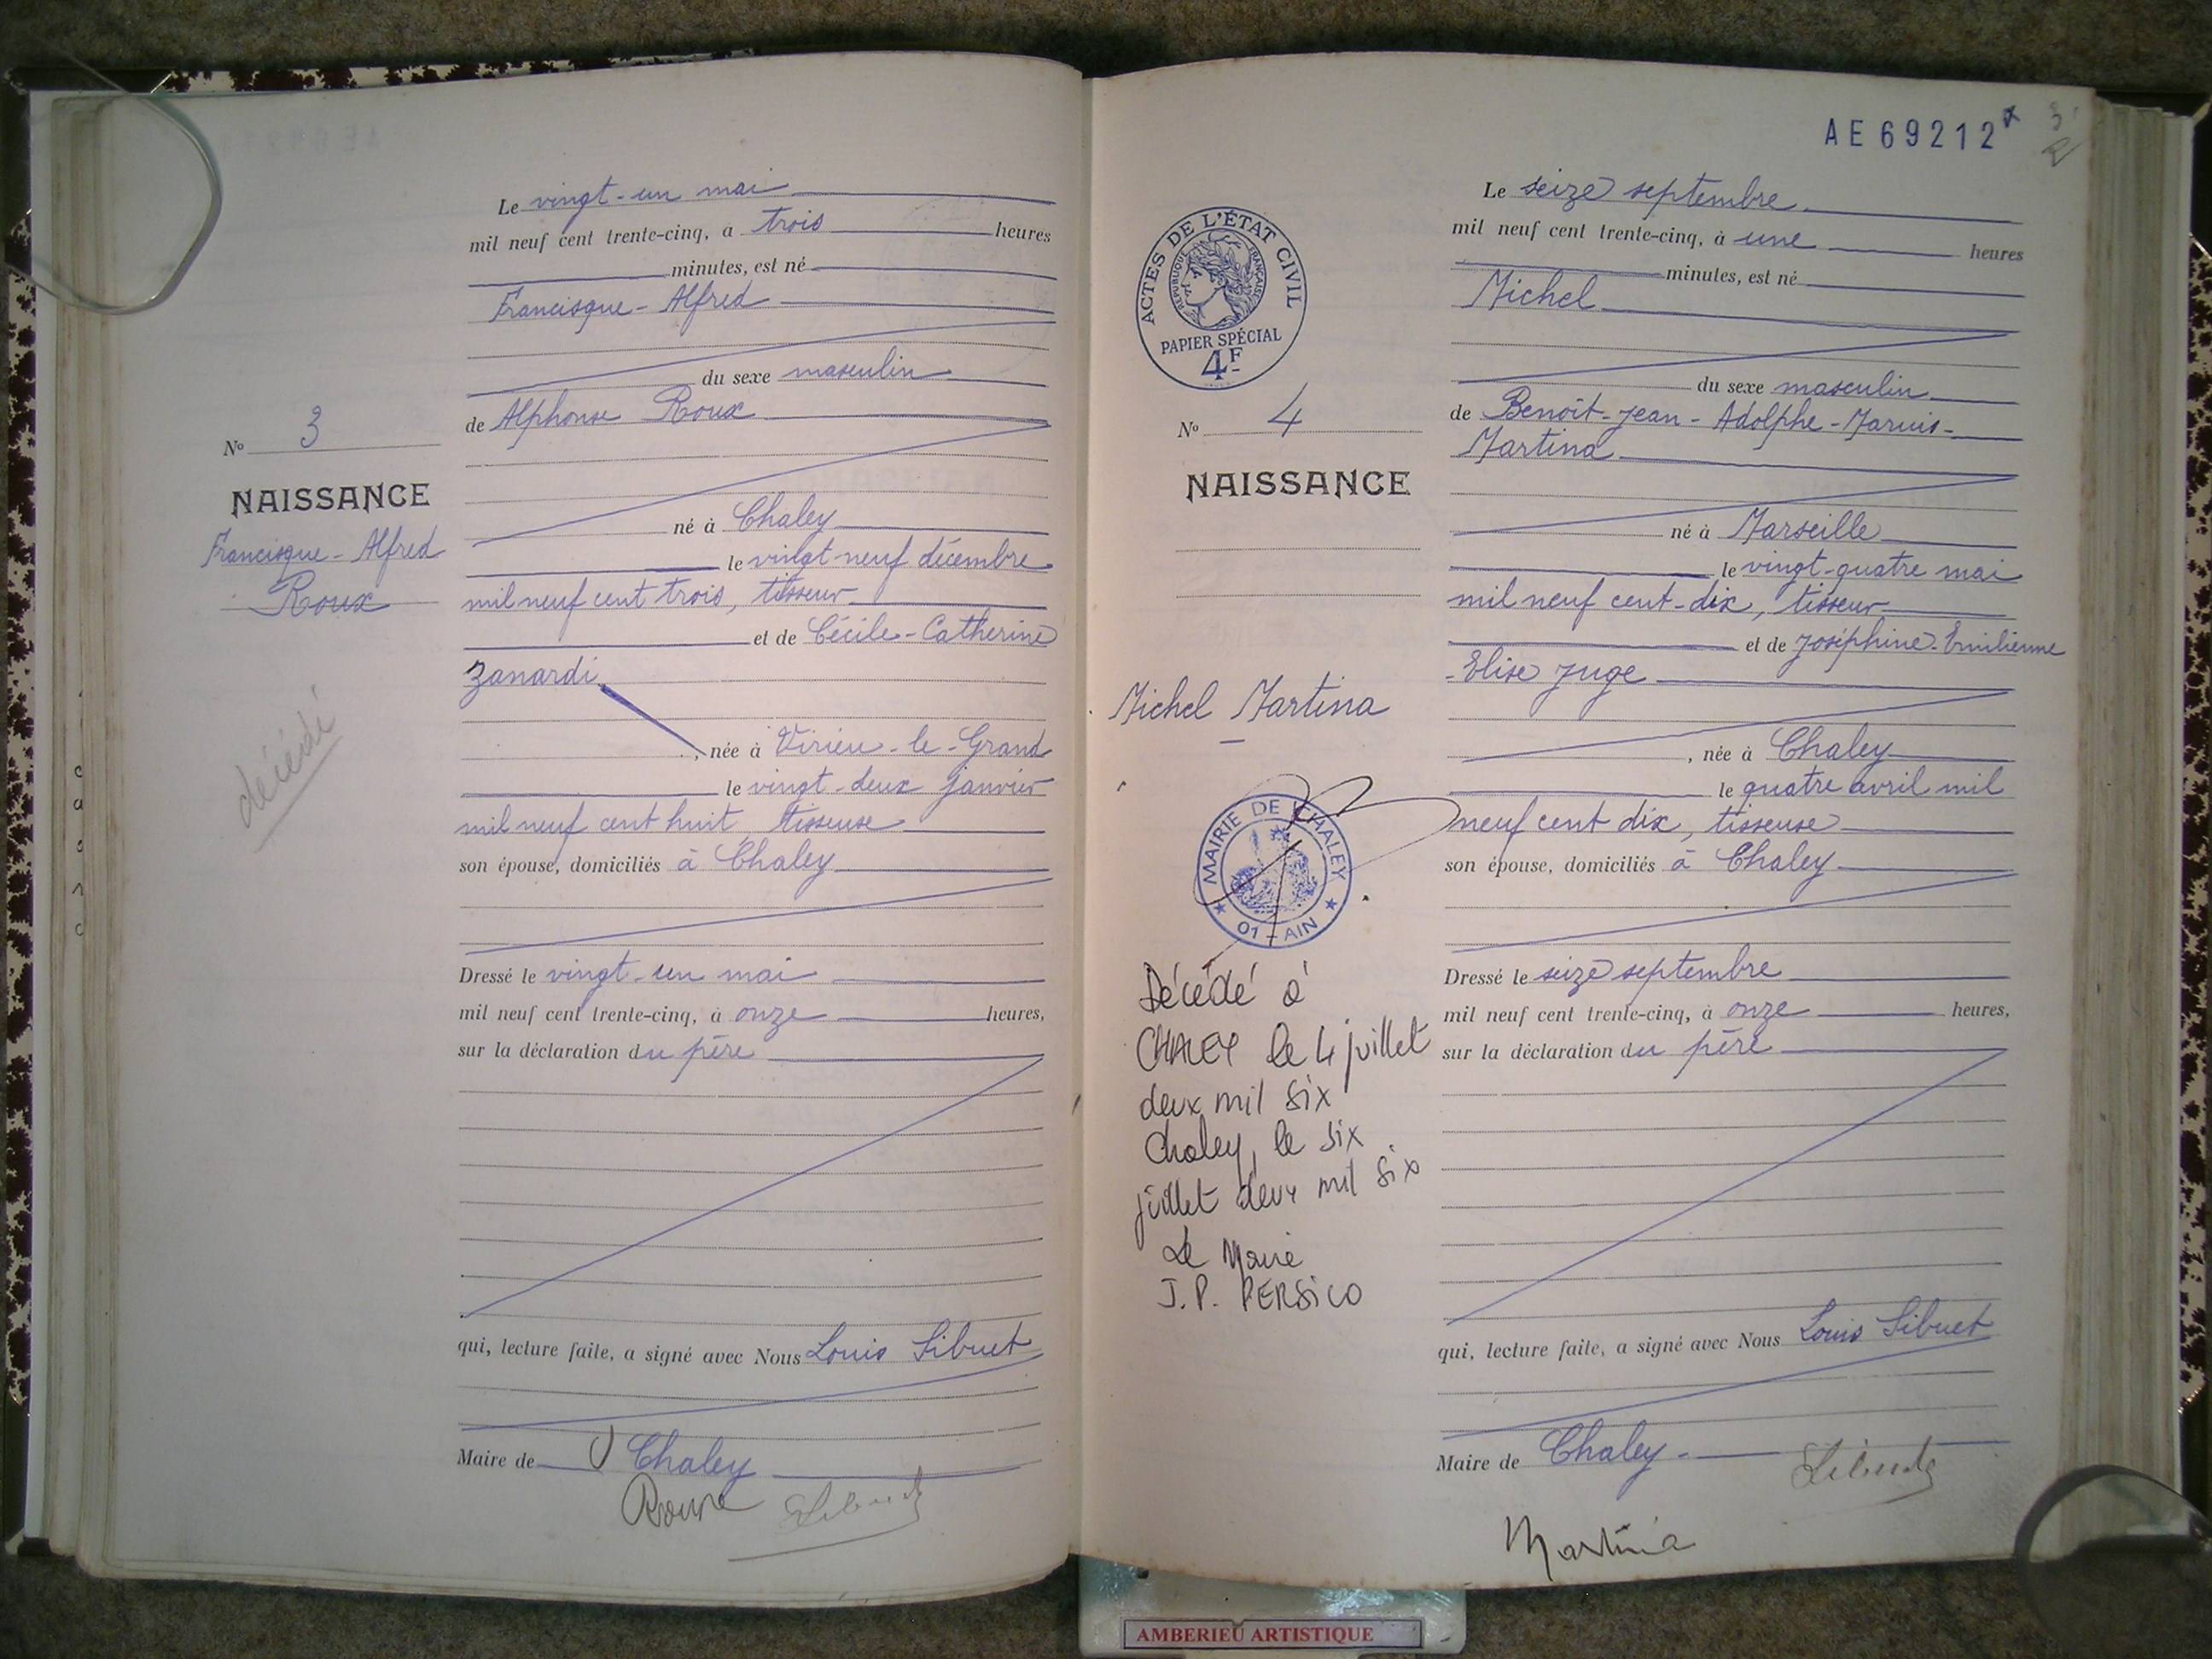 Le vingt-un mai
mil neuf cent trente-cinq, à trois heures
minutes, est né
Francisque-Alfred
du sexe masculin
de Alphonse Roux
No 3
NAISSANCE
Francisque-Alfred
Roux
décédé
né à Chaley
le vingt-neuf décembre
mil neuf cent trois, tisseur
et de Cécile-Catherine
Zanardi
, née à Virieu-le-Grand
le vingt-deux janvier
mil neuf cent huit, tisseuse
son épouse, domiciliés à Chaley
Dressé le vingt-un mai
mil neuf cent trente-cinq, à onze heures,
sur la déclaration du père
qui, lecture faite, a signé avec Nous Louis Sibuet
Maire de Chaley
Roux Sibuet
AE69212
ACTES DE L'ÉTAT CIVIL
RÉPUBLIQUE FRANÇAISE
PAPIER SPÉCIAL
4F
No 4
NAISSANCE
Michel Martina
MAIRIE DE CHALEY
01 - AIN
Décédé à
CHALEY le 4 juillet
deux mil six
Chaley, le six
juillet deux mil six
Le Maire
J.P. PERSICO
Le seize septembre
mil neuf cent trente-cinq, à une heures
minutes, est né
Michel
du sexe masculin
de Benoît-Jean-Adolphe-Marius-
Martina
né à Marseille
le vingt-quatre mai
mil neuf cent-dix, tisseur
et de Joséphine-Emilienne
-Elise Juge
, née à Chaley
le quatre avril mil
neuf cent dix, tisseuse
son épouse, domiciliés à Chaley
Dressé le seize septembre
mil neuf cent trente-cinq, à onze heures,
sur la déclaration du père
qui, lecture faite, a signé avec Nous Louis Sibuet
Maire de Chaley-
Sibuet
Martina
AMBERIEU ARTISTIQUE